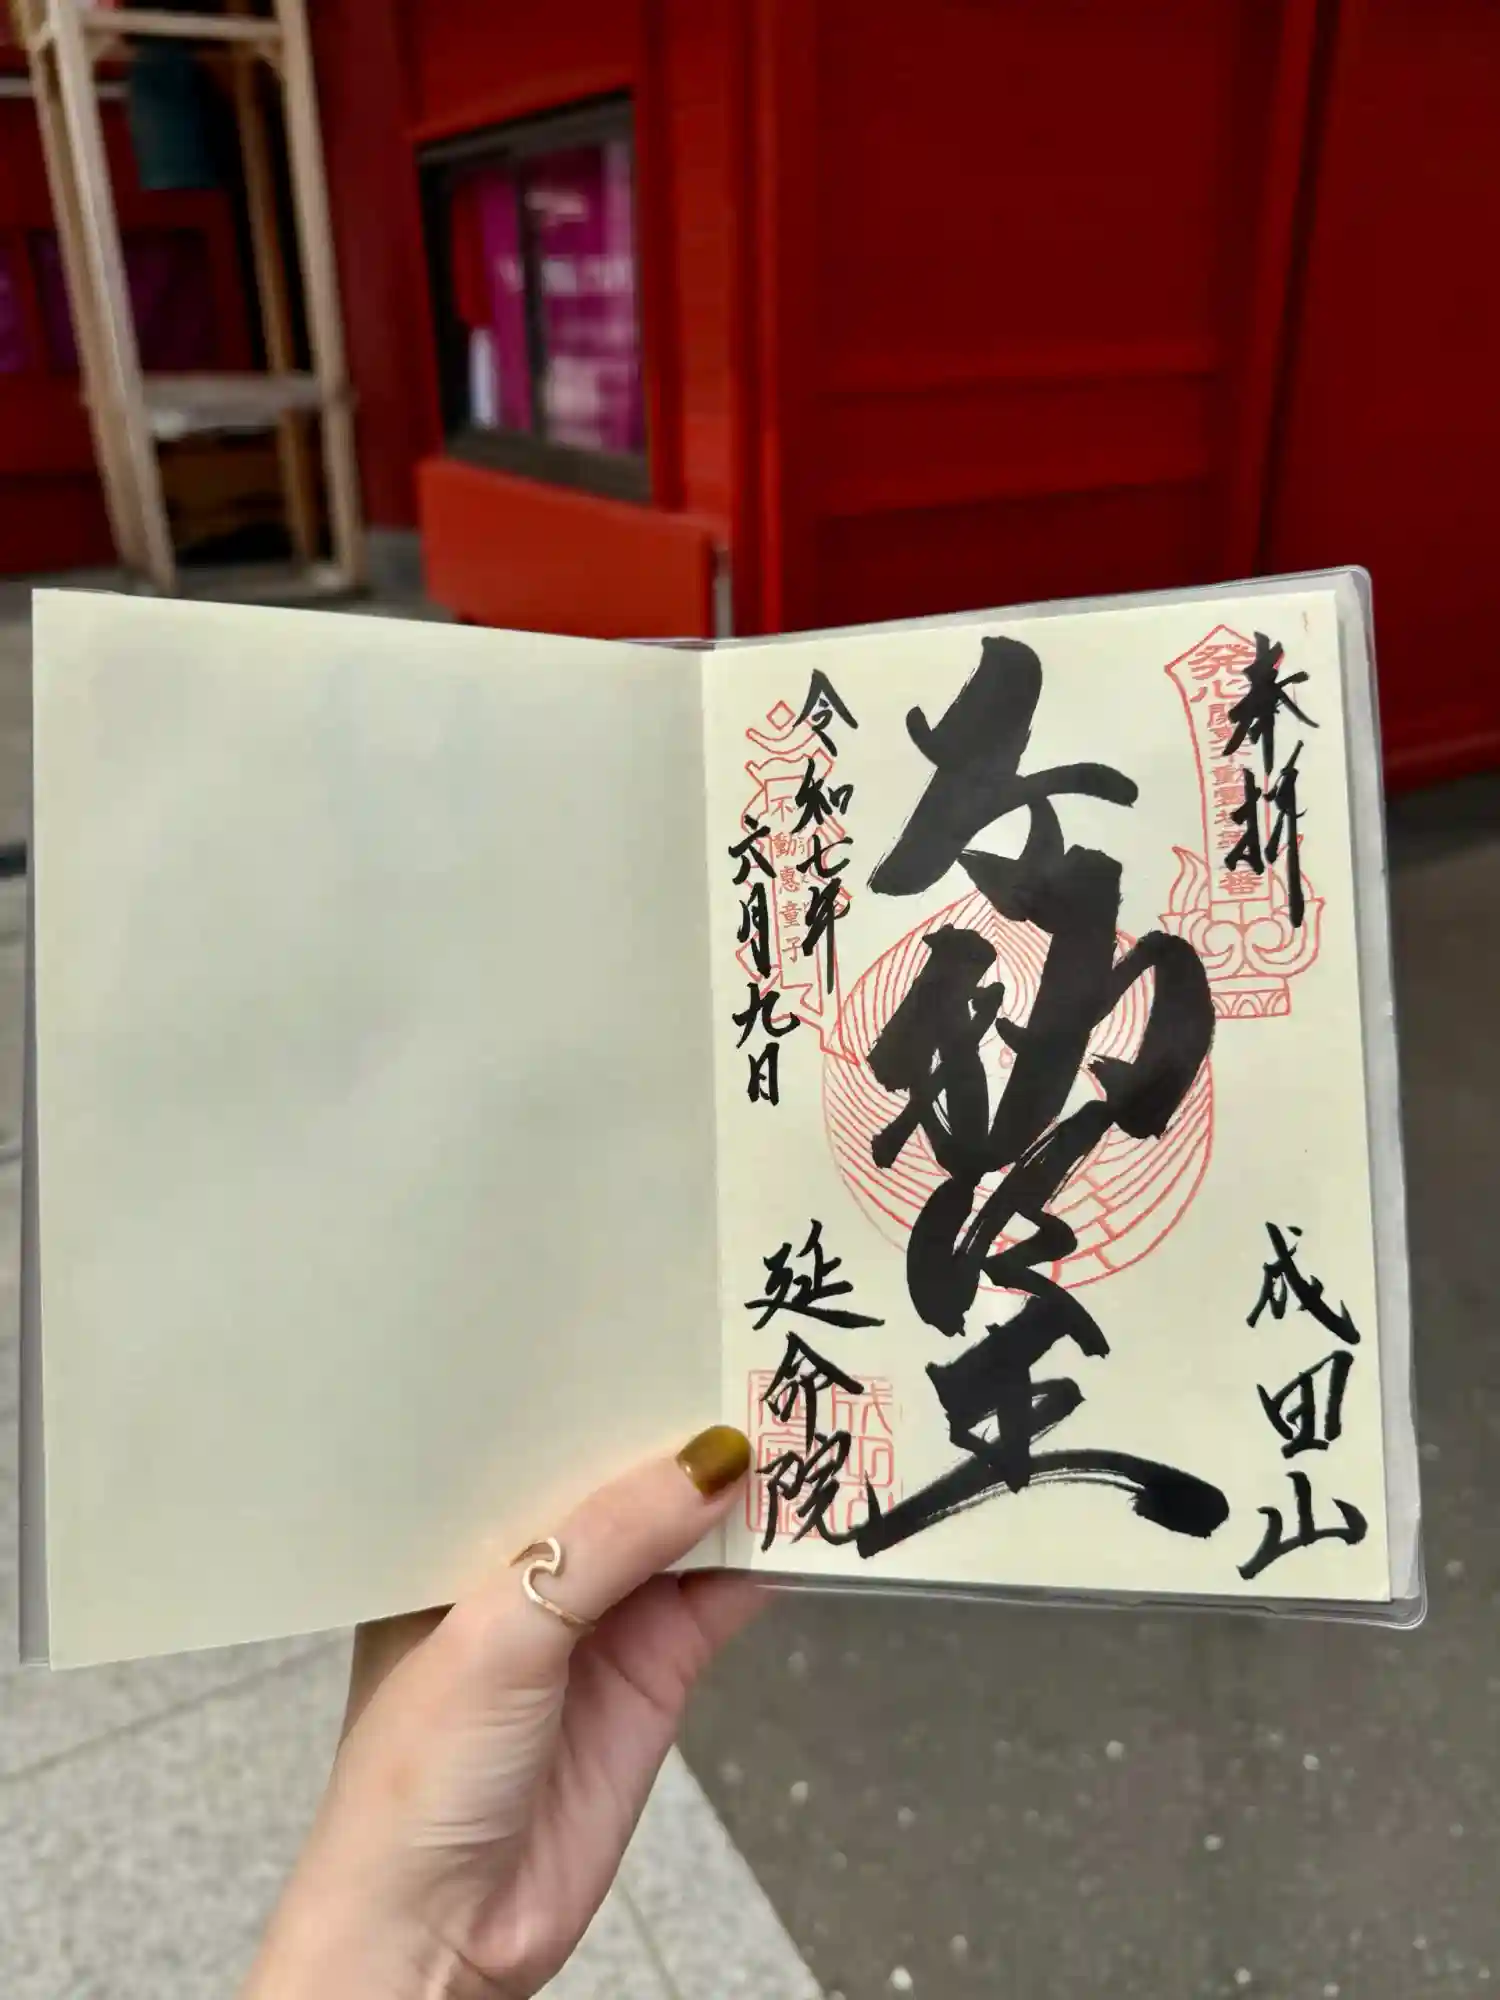 奉拝
発心
関東不動霊場第八番
成田山
不動明王
令和七年
六月九日
不動恵童子
延命院